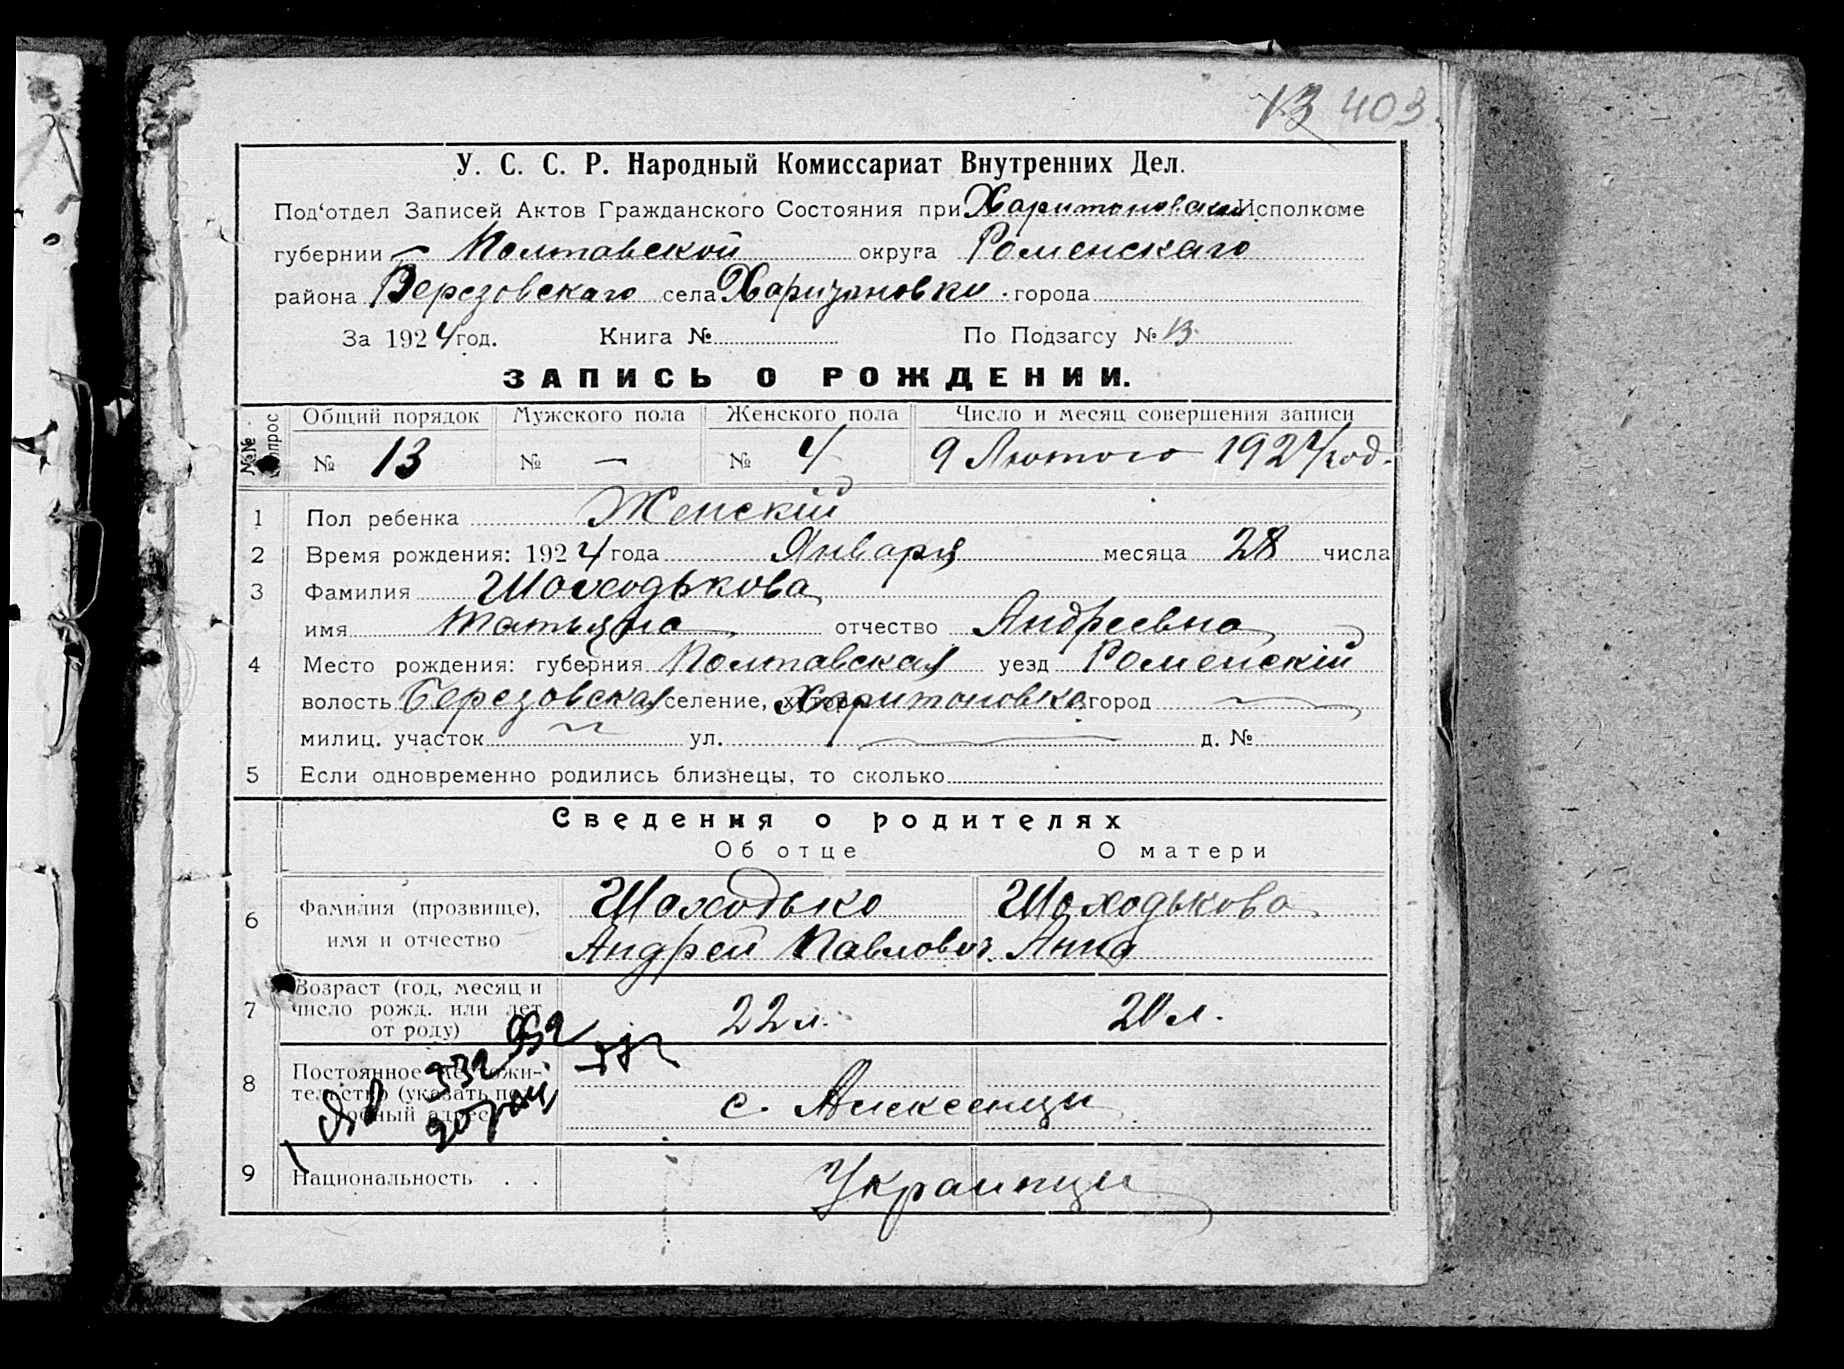 13 403.
У. С. С. Р. Народный Комиссариат Внутренних Дел.
Под‘отдел Записей Актов Гражданского Состояния при Харитоновском Исполкоме
губернии Полтавской округа Роменскаго
района Березовскаго села Харитановки города
За 1924 год. Книга № По Подзагсу № 13
ЗАПИСЬ О РОЖДЕНИИ.
№№ вопрос Общий порядок Мужского пола Женского пола Число и месяц совершения записи
№ 13 № — № 4 9 Лютого 1924 год.
1 Пол ребенка Женскій
2 Время рождения: 1924 года Января месяца 28 числа
3 Фамилия Шаходькова
имя Татьяна отчество Андреевна
4 Место рождения: губерния Полтавская уезд Роменскій
волость Березовская селение, Харитоновка город
милиц. участок ул. д. №
5 Если одновременно родились близнецы, то сколько
Сведения о родителях
Об отце О матери
6 Фамилия (прозвище), имя и отчество Шаходько Шаходькова
Андрей Павлович Анна
7 Возраст (год, месяц и число рожд. или лет от роду) 22 л. 20 л.
8 Постоянное местожительство (указать подробный адрес) с. Алексенцы
9 Национальность . . Украинцы